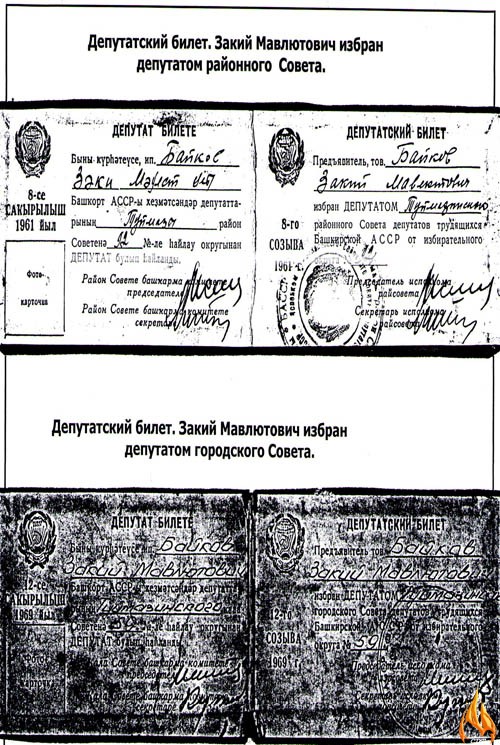 Депутатский билет. Закий Мавлютович избран
депутатом районного Совета.
ДЕПУТАТ БИЛЕТЕ
Быны күрһәтеүсе, ип. Байков
Зәки Мәүлет
8-се
САҠЫРЫЛЫШ
1961 йыл
Башҡорт АССР-ы хеҙмәтсәндәр депутатта-
рының Туймазы район
Советенә 92 №-ле һайлау округынан
ДЕПУТАТ булып һайланды.
Фото-
карточка
Район Совете башкарма комитете
председателе
Район Совете башкарма комитете
секретаре
ДЕПУТАТСКИЙ БИЛЕТ
Предъявитель, тов. Байков
Закий Мавлютович
избран ДЕПУТАТОМ Туймазинского
8-го
СОЗЫВА
1961 г.
районного Совета депутатов трудящихся
Башкирской АССР от избирательного
Председатель исполкома
райсовета
Секретарь исполкома
райсовета
Депутатский билет. Закий Мавлютович избран
депутатом городского Совета.
ДЕПУТАТ БИЛЕТЕ
Быны күрһәтеүсе ип. Байков
Закий Мавлютович
12-се
САҠЫРЫЛЫШ
1969 йыл
Башҡорт АССР-ы хеҙмәтсәндәр депутаттары
Туймазинского
Советенә 59 №-ле һайлау округынан
ДЕПУТАТ булып һайланды.
Фото
карточка
Кала Совете башкарма комитете
председателе
Кала Совете башкарма комитете
секретаре
ДЕПУТАТСКИЙ БИЛЕТ
Предъявитель тов. Байков
Закий Мавлютов
избран ДЕПУТАТОМ Туймазинск
12-го
СОЗЫВА
1969 г.
городского Совета депутатов трудящихся
Башкирской АССР от избирательного
округа № 59
Председатель исполкома
горсовета
Секретарь исполкома